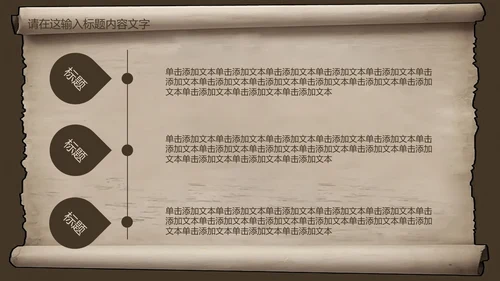 请在这输入标题内容文字
标题
单击添加文本单击添加文本单击添加文本单击添加文本单击添加文本单击
添加文本单击添加文本单击添加文本单击添加文本单击添加文本单击添加
文本单击添加文本单击添加文本单击添加文本
标题
单击添加文本单击添加文本单击添加文本单击添加文本单击添加文本单击
添加文本单击添加文本单击添加文本单击添加文本单击添加文本单击添加
文本单击添加文本单击添加文本单击添加文本
标题
单击添加文本单击添加文本单击添加文本单击添加文本单击添加文本单击
添加文本单击添加文本单击添加文本单击添加文本单击添加文本单击添加
文本单击添加文本单击添加文本单击添加文本